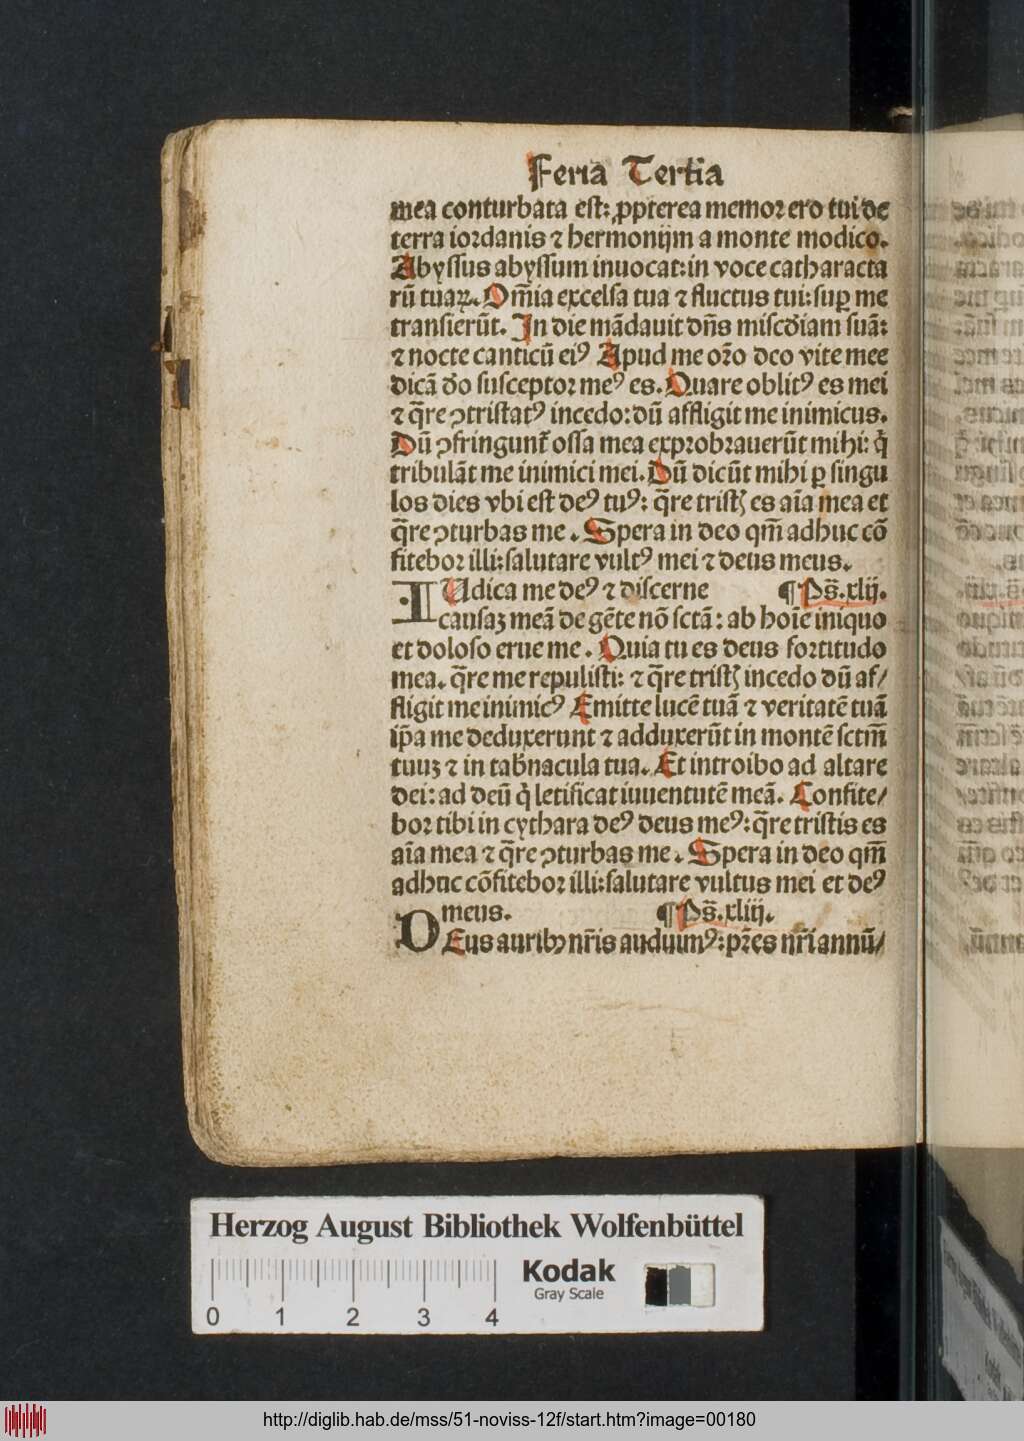 Feria Tertia
mea conturbata est: ꝓpterea memor ero tui de
terra iordanis ⁊ hermonijm a monte modico.
Abyssus abyssum inuocat: in voce catharacta
rū tuaꝝ. Om̄ia excelsa tua ⁊ fluctus tui: suꝑ me
transierūt. In die mādauit dn̄s mis᷒cdiam suā:
⁊ nocte canticū eiꝰ Apud me or̄o deo vite mee
dicā do susceptor meꝰ es. Quare oblitꝰ es mei
⁊ q̄re ↄtristatꝰ incedo: dū affligit me inimicus.
Dū ↄfringunt᷑ ossa mea exprobrauerūt mihi: q̇
tribulāt me inimici mei. Dū dicūt mihi ꝑ singu
los dies vbi est deꝰ tuꝰ: q̄re trist᷒ es aīa mea et
q̄re ↄturbas me. Spera in deo qm̄ adhuc cō
fitebor illi: salutare vultꝰ mei ⁊ deus meus.
IUdica me deꝰ ⁊ discerne ¶ Ps̄. xlij.
causaꝫ meā de gēte nō sctā: ab hoīe iniquo
et doloso erue me. Quia tu es deus fortitudo
mea. q̄re me repulisti: ⁊ q̄re trist᷒ incedo dū af/
fligit me inimicꝰ Emitte lucē tuā ⁊ veritatē tuā
ip̄a me deduxerunt ⁊ adduxerūt in montē sctm̄
tuuꝫ ⁊ in tab̄nacula tua. Et introibo ad altare
dei: ad deū q̇ letificat iuuentutē meā. Confite/
bor tibi in cythara deꝰ deus meꝰ: q̄re tristis es
aīa mea ⁊ q̄re ↄturbas me. Spera in deo qm̄
adhuc cōfitebor illi: salutare vultus mei et deꝰ
meus. ¶ Ps̄. xliij.
DEus auribꝫ nr̄is auduimꝰ: pr̄es nr̄i annū/
Herzog August Bibliothek Wolfenbüttel
Kodak
Gray Scale
0 1 2 3 4
http://diglib.hab.de/mss/51-noviss-12f/start.htm?image=00180